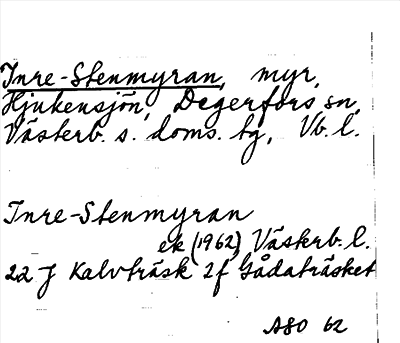 Inre-Stenmyran, myr,
Hjukensjön, Degerfors sn,
Västerb. s. doms. tg, Vb. l.
Inre-Stenmyran
ek (1962), Västerb. l.
22 J Kalvträsk 2f Gådaträsket
ASO 62